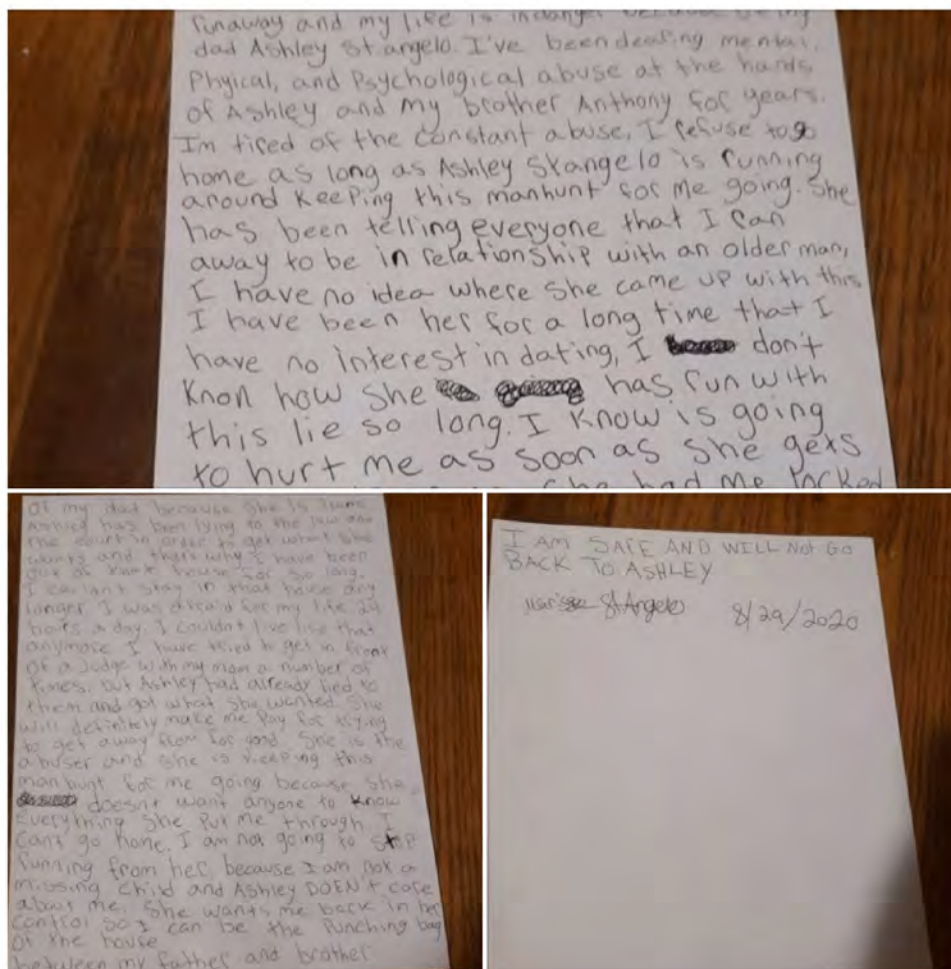 runaway and my life is in danger because of my
dad Ashley St angelo. I've been dealing mental,
Phyical, and Psychological abuse at the hands
of Ashley and my brother Anthony for years.
Im tired of the constant abuse, I refuse to go
home as long as Ashley Stangelo is running
around keeping this manhunt for me going. She
has been telling everyone that I ran
away to be in relationship with an older man,
I have no idea where she came up with this
I have been her for a long time that I
have no interest in dating, I don't
Know how she has run with
this lie so long. I know is going
to hurt me as soon as she gets
She had me locked
of my dad because she is trans
Ashley has been lying to the law and
the court in order to get what she
wants and thats why I have been
out of house for so long.
I can't stay in that house any
longer I was afraid for my life 24
hours a day. I couldn't live like that
anymore I have tried to get in front
of a Judge with my mom a number of
times, but Ashley had already lied to
them and got what she wanted. She
will definitely make me pay for trying
to get away from for good. She is the
abuser and she is keeping this
manhunt for me going because she
doesn't want anyone to know
everything she put me through I
can't go home. I am not going to stop
running from her because I am not a
missing child and Ashley DOEN't care
about me, She wants me back in her
control so I can be the Punching bag
of the house
between my father and brother
I AM SAFE AND WILL NOT GO
BACK TO ASHLEY
StAngelo 8/29/2020